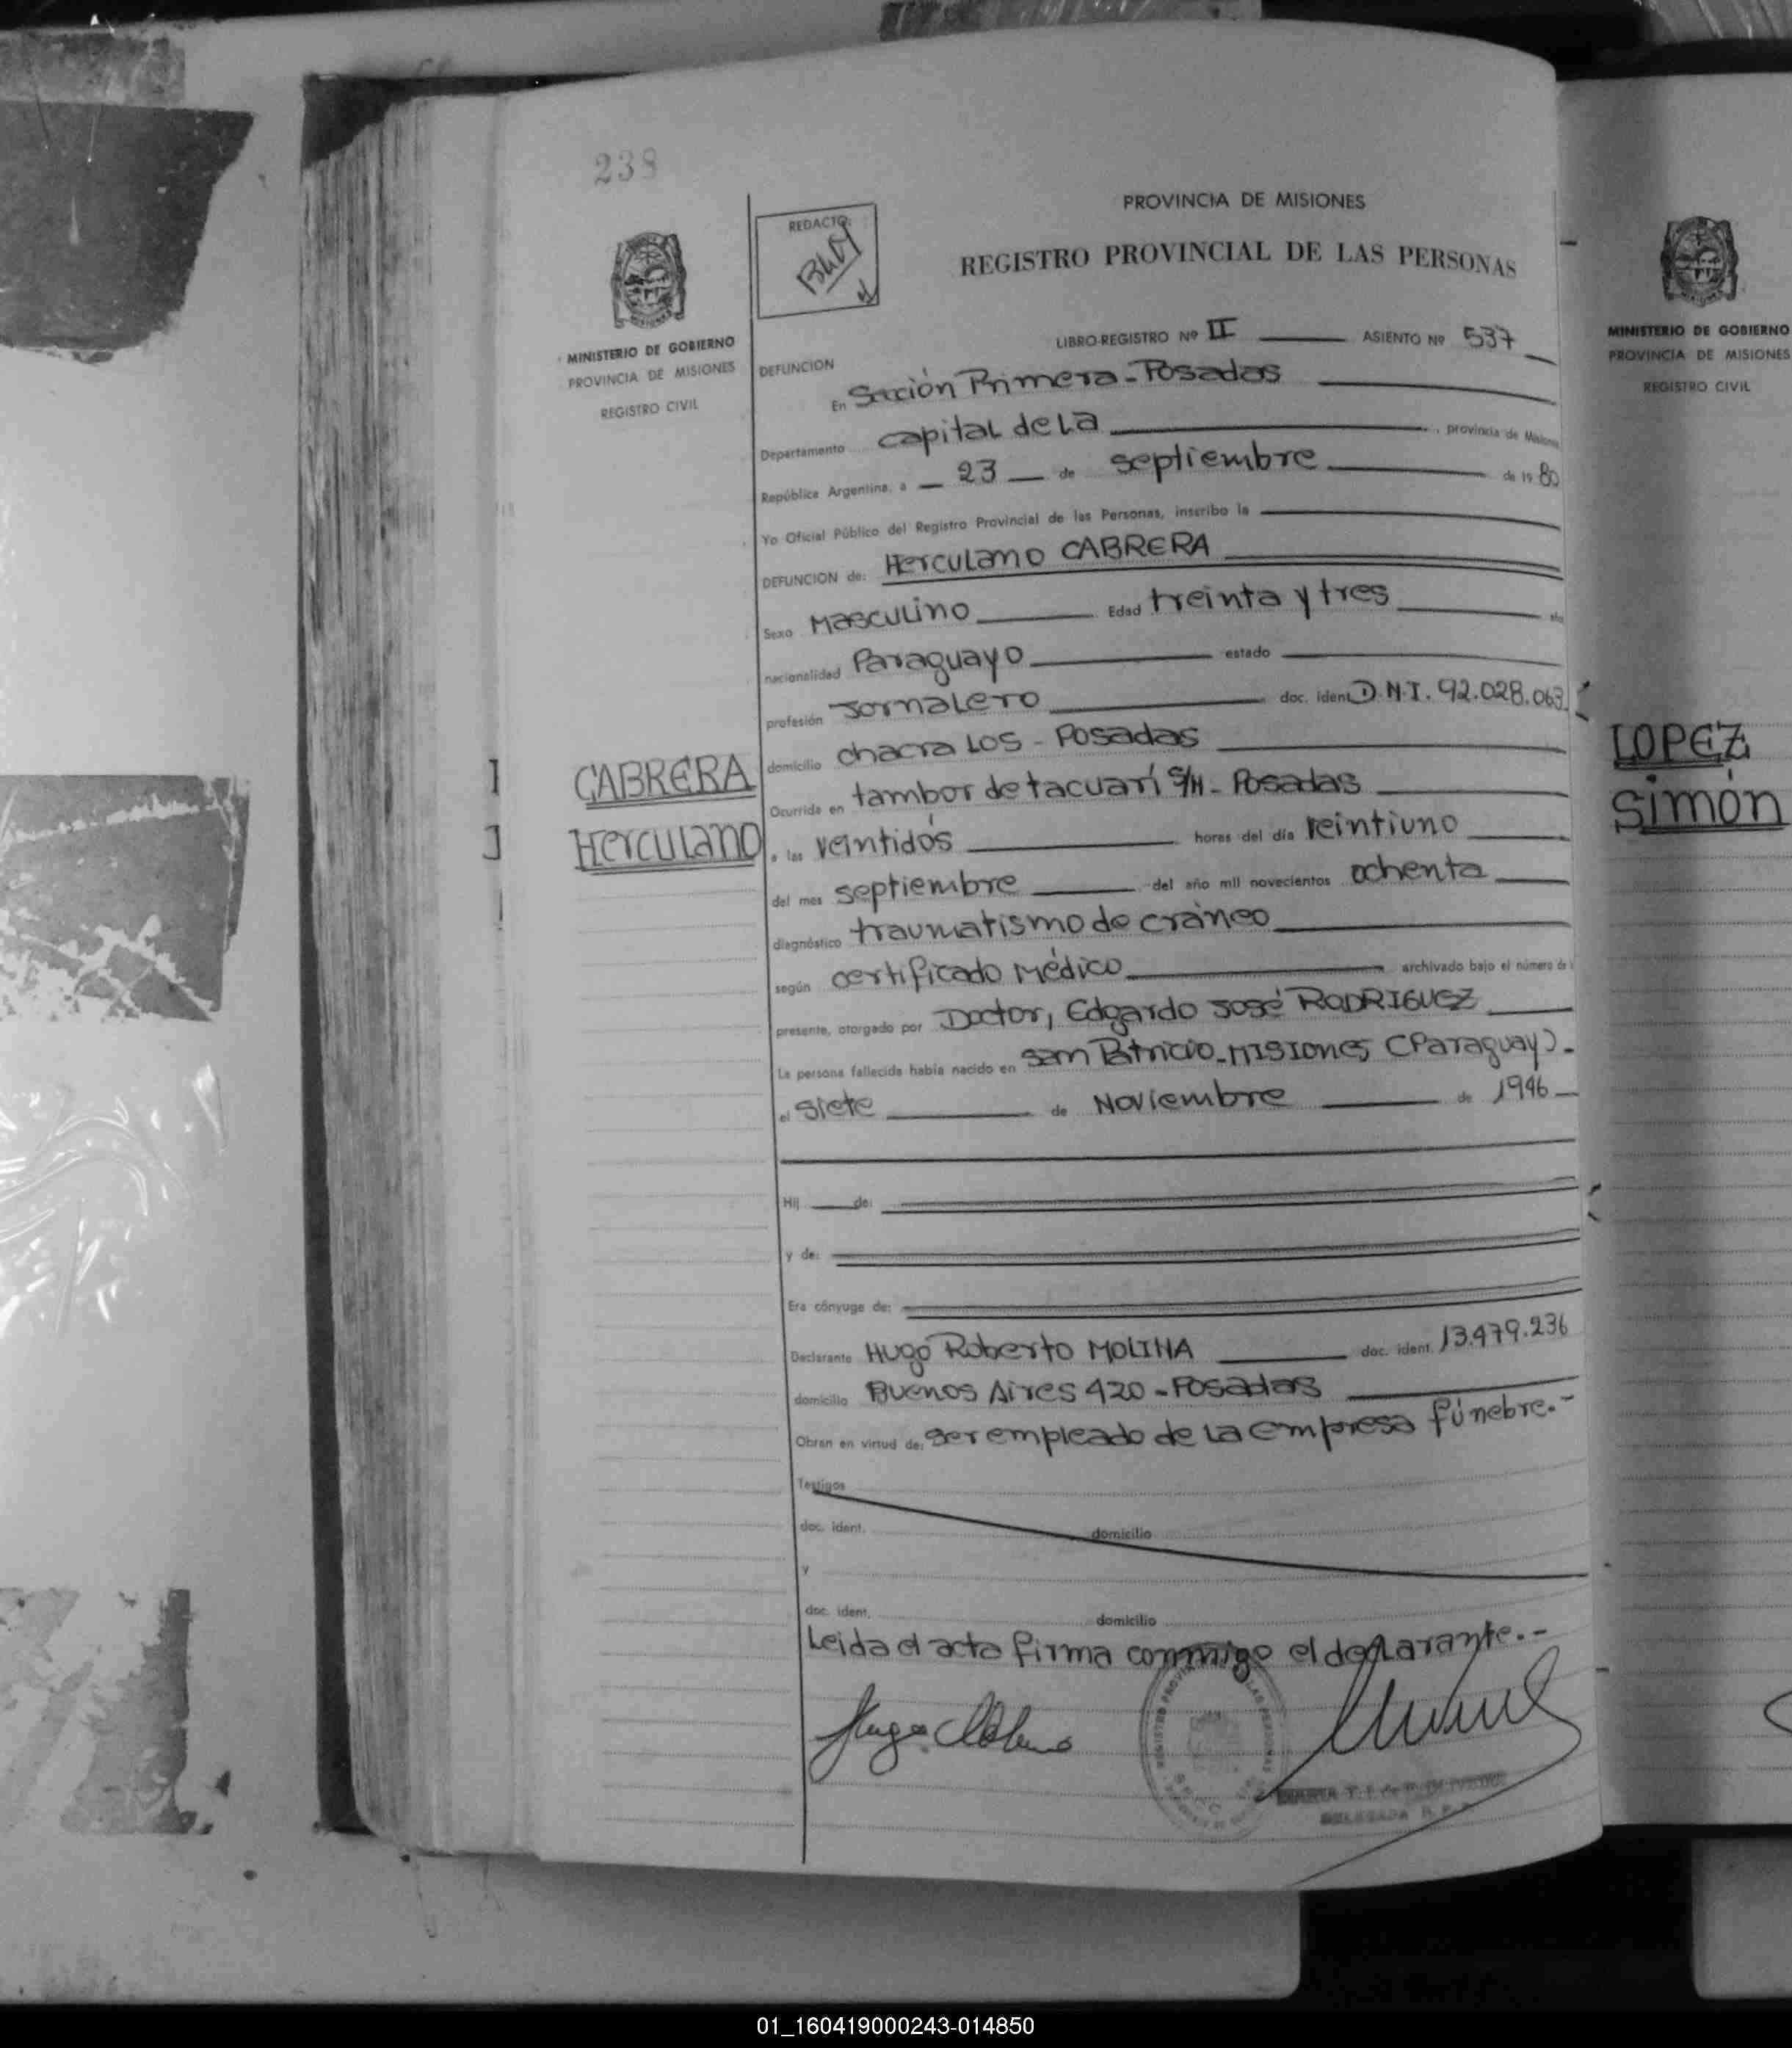 238
PROVINCIA DE MISIONES
REGISTRO PROVINCIAL DE LAS PERSONAS
REDACTO:
MINISTERIO DE GOBIERNO
PROVINCIA DE MISIONES
REGISTRO CIVIL
LIBRO-REGISTRO Nº II ASIENTO Nº 537
DEFUNCION
En Sección Primera - Posadas
Departamento capital de la provincia de Misiones
República Argentina, a 23 de septiembre de 1980
Yo Oficial Público del Registro Provincial de las Personas, inscribo la
DEFUNCION de: Herculano CABRERA
Sexo Masculino Edad treinta y tres
nacionalidad Paraguayo estado
profesión Jornalero doc. ident. D.N.I. 92.028.063
CABRERA
Herculano
domicilio chacra Los - Posadas
Ocurrida en tambor de tacuarí S/N - Posadas
a las veintidós horas del día veintiuno
del mes septiembre del año mil novecientos ochenta
diagnóstico traumatismo de cráneo
según certificado Médico archivado bajo el número de
presente, otorgado por Doctor, Edgardo José RODRIGUEZ
La persona fallecida había nacido en San Patricio - Misiones (Paraguay).-
el siete de Noviembre de 1946
Hij de:
y de:
Era cónyuge de:
Declarante Hugo Roberto MOLINA doc. ident. 13.479.236
domicilio Buenos Aires 420 - Posadas
Obran en virtud de: ser empleado de la empresa fúnebre.-
Testigos
doc. ident. domicilio
y
doc. ident. domicilio
Leida el acta firma conmigo el declarante.-
Hugo Molina
DELEGADA R. P. P.
MINISTERIO DE GOBIERNO
PROVINCIA DE MISIONES
REGISTRO CIVIL
LOPEZ
Simón
01_160419000243-014850